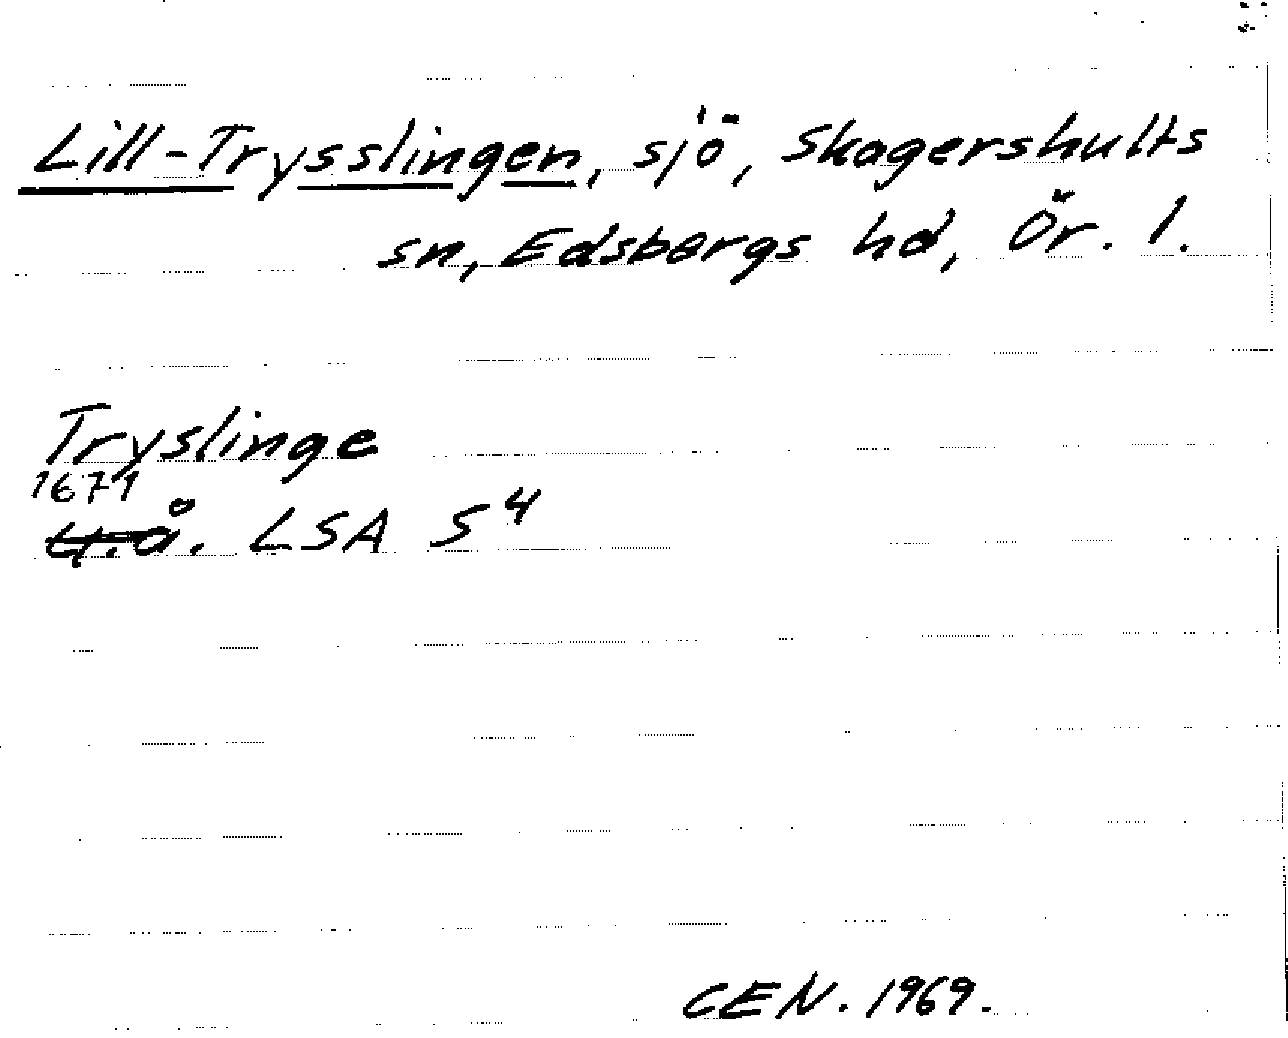 Lill-Trysslingen, sjö, Skagershults
sn, Edsbergs hd, Ör. l.
Tryslinge
1671
u.å. LSA S⁴
CEN. 1969.